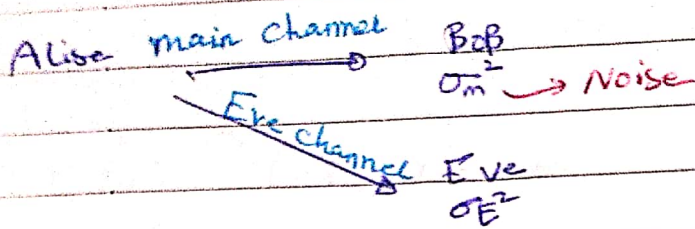 Alise main channel BoB
σm² → Noise
Eve channel
Eve
σE²